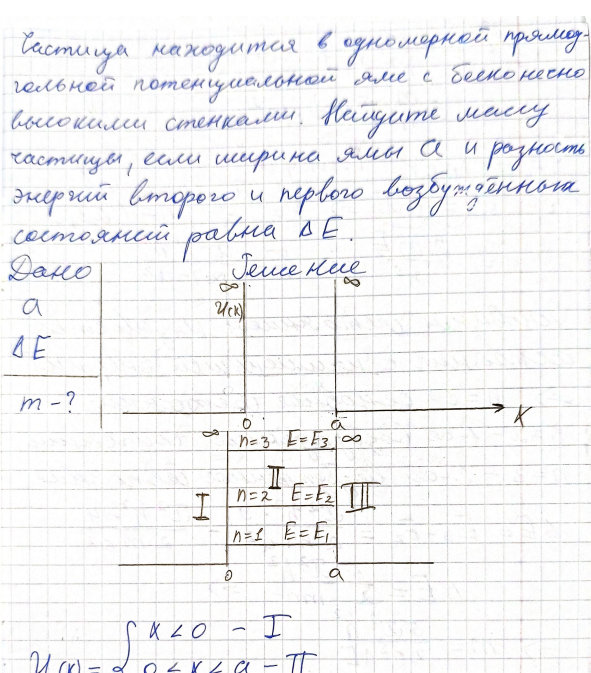 Частица находится в одномерной прямоу-
гольной потенциальной яме с бесконечно
высокими стенками. Найдите массу
частицы, если ширина ямы a и разность
энергий второго и первого возбуждённых
состояний равна ΔE.
Дано Решение
a
ΔE
m - ?
∞ ∞
U(x)
0 a x
∞ n=3 E=E₃ ∞
II
I n=2 E=E₂ III
n=1 E=E₁
0 a
x < 0 - I
U(x) = { 0 < x < a - II